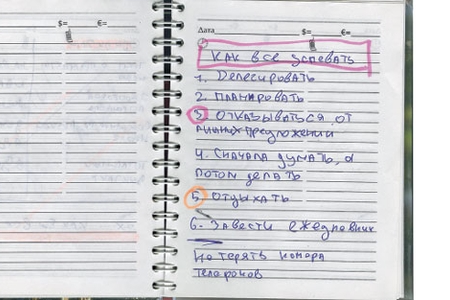 $= €=
Дата $= €=
Как все успевать
1. Делегировать
2. Планировать
3 Отказываться от
лишних предложений
4. Сначала думать, а
потом делать
5 Отдыхать
6. Завести ежедневник
Не терять номера
телефонов